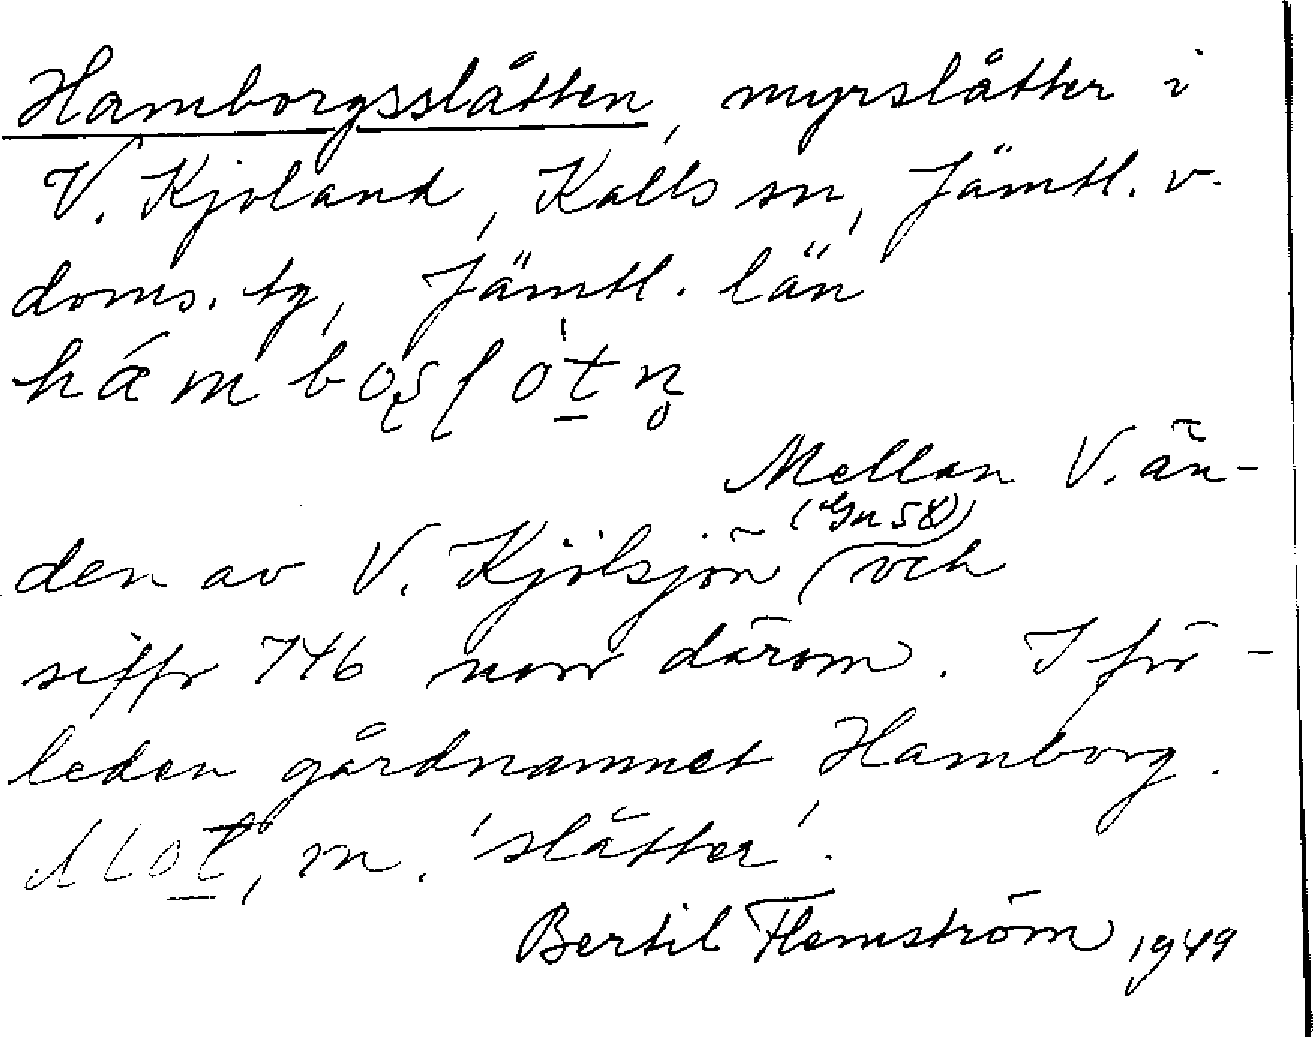 Hamborgsslåtten, myrslåtter i
V. Kjoland, Kalls sn, Jämtl. v.
doms. tg, Jämtl. län
Mellan V. än-
den av V. Kjölsjön (Gn 58) och
siffr 746 norr därom. I för-
leden gårdnamnet Hamborg.
slot, m. 'slåtter'.
Bertil Flemström 1949